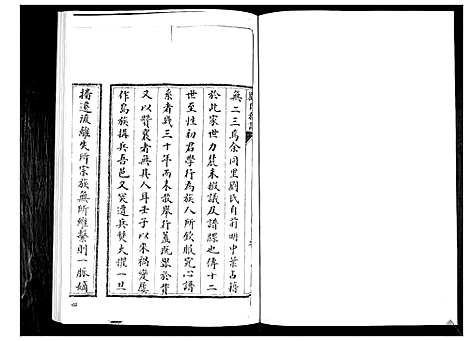 無二三焉余同里劉氏自前明中葉占籍
於此家世力農未擬議及譜牒也傳十二
世至性初君學行為族人所欽服究心譜
系者幾三十年而未敢舉行蓋既艱於貲
又以贊襄者無其人耳壬子以來禍變屢
作烏族搆兵吾邑又召遣兵焚大擾一旦
播遷流離失所宗族無所維繫則一脈嫡